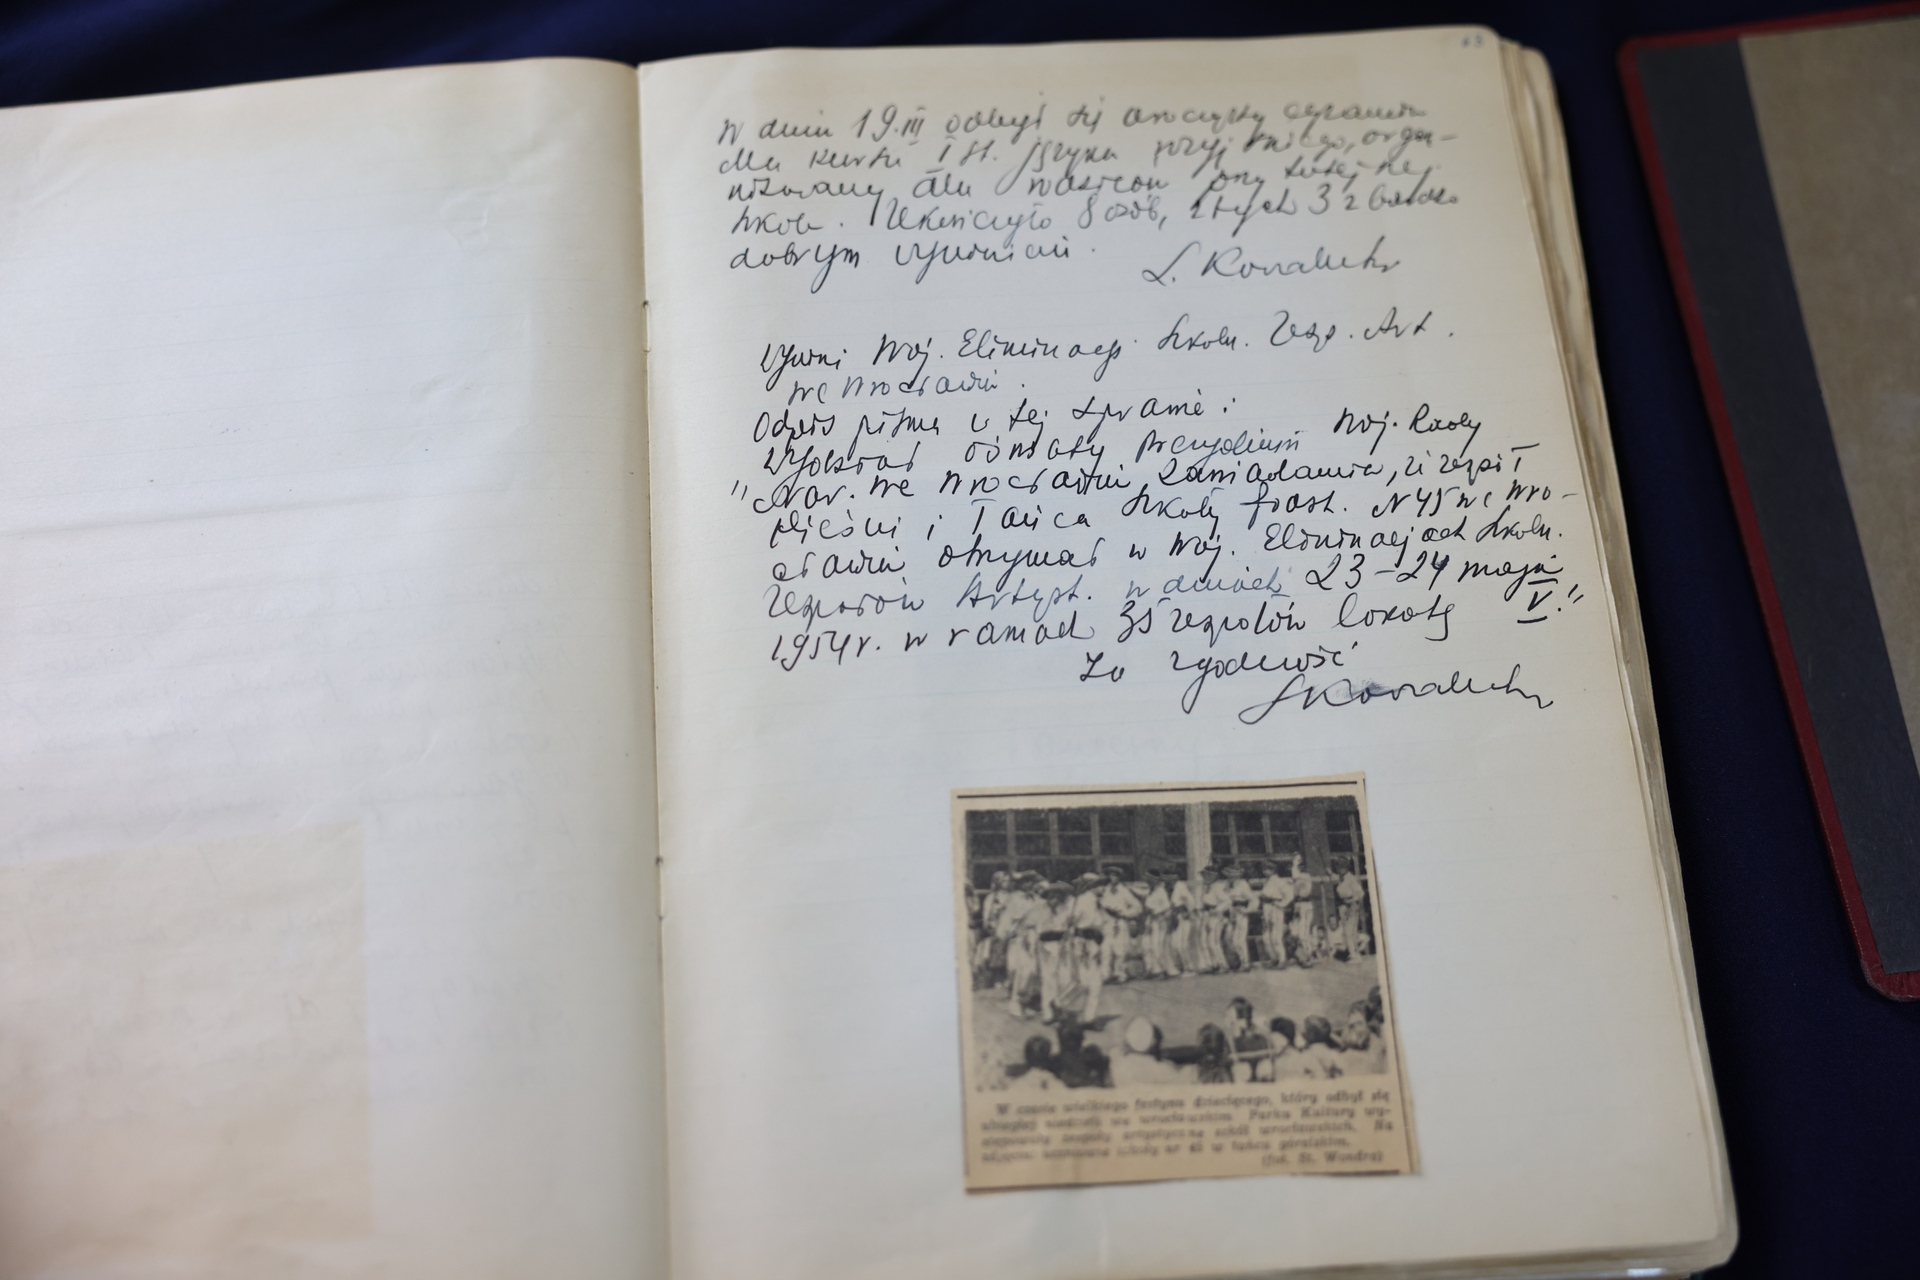 63
W dniu 19.III odbył się uroczysty egzamin
dla kursu I st. języka rosyjskiego, orga-
nizowany dla rodziców przy tutejszej
szkole. Ukończyło 8 osób, z tych 3 z bardzo
dobrym wynikiem.
L. Kowaluk
Wyniki Woj. Eliminacji Szkoln. Zesp. Art.
we Wrocławiu.
Odpis pisma w tej sprawie:
Wydział Oświaty Prezydium Woj. Rady
"Nar. we Wrocławiu zawiadamia, że zespół
pieśni i Tańca Szkoły Podst. N 45 we Wro-
cławiu otrzymał w Woj. Eliminacjach Szkoln.
Zespołów Artyst. w dniach 23-24 maja
1954r. w ramach 35 zespołów lokatę V."
Za zgodność
Kowaluk
W czasie wielkiego festynu dziecięcego, który odbył się
ubiegłej niedzieli we wrocławskim Parku Kultury wy-
stępowały zespoły artystyczne szkół wrocławskich. Na
zdjęciu: uczniowie szkoły nr 45 w tańcu góralskim.
(fot. St. Wondra)